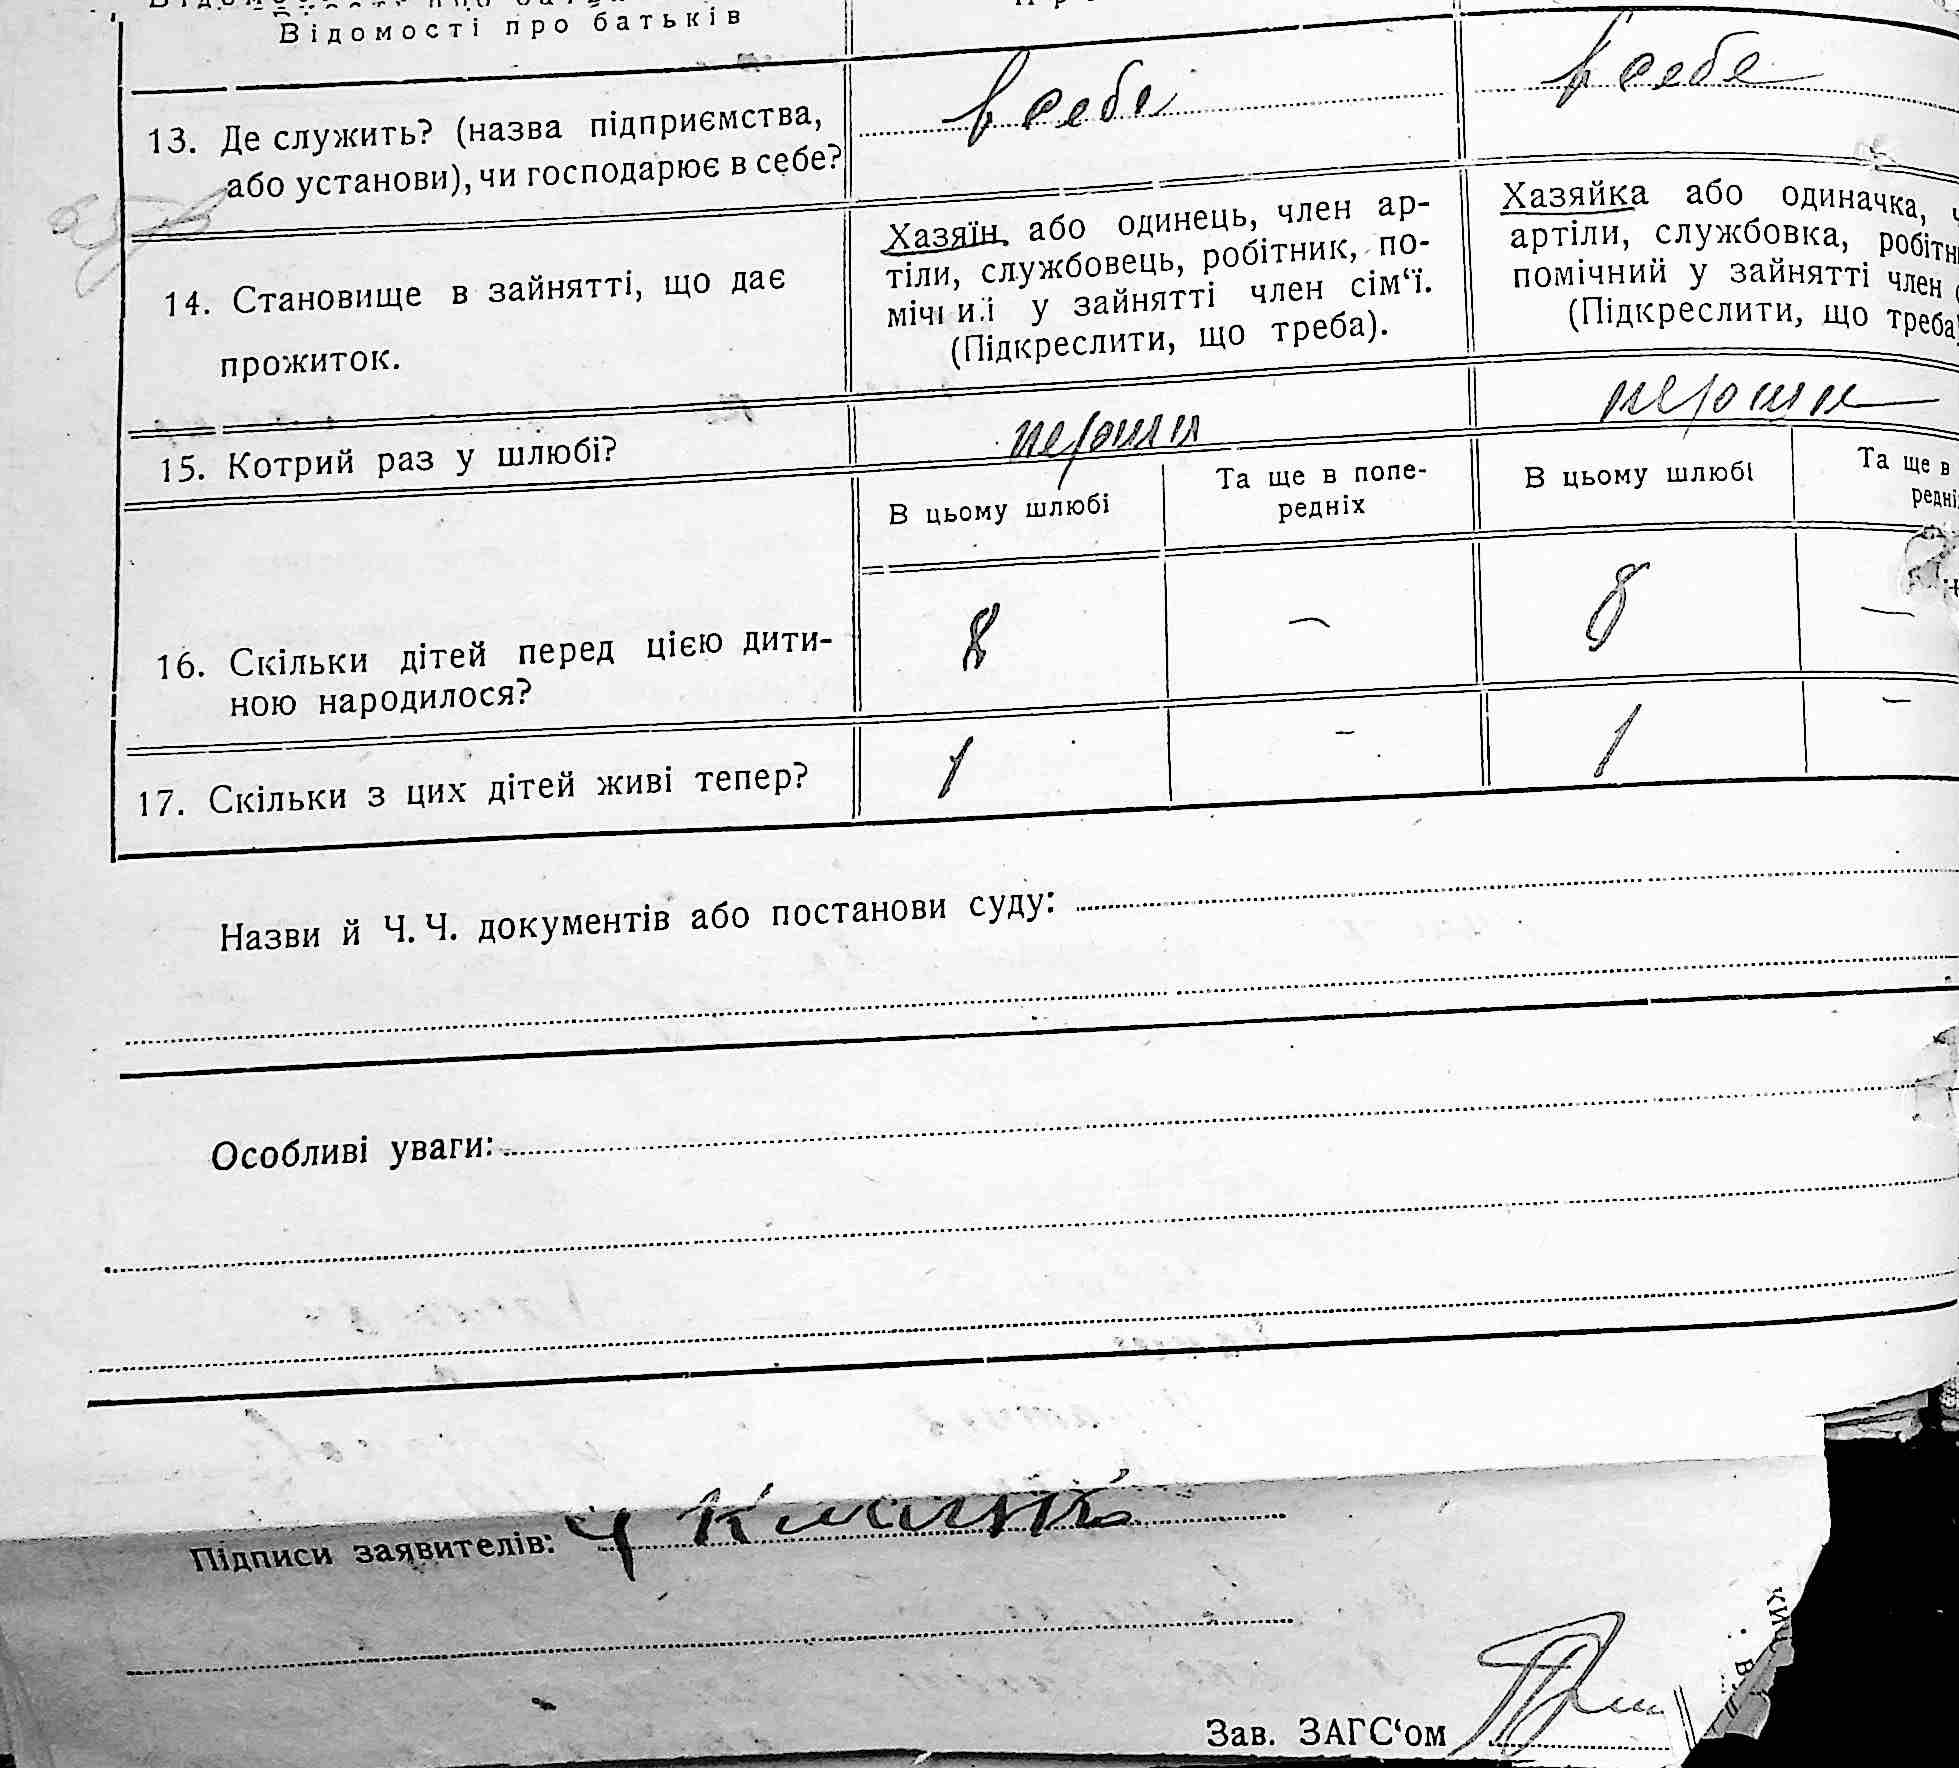 Відомості про батьків
13. Де служить? (назва підприємства, або установи), чи господарює в себе?
в себе
в себе
14. Становище в зайнятті, що дає прожиток.
Хазяїн, або одинець, член ар-
тіли, службовець, робітник, по-
мічний у зайнятті член сім‘ї.
(Підкреслити, що треба).
Хазяйка або одиначка,
артіли, службовка, робітн
помічний у зайнятті член
(Підкреслити, що треба)
15. Котрий раз у шлюбі?
перший
перший
В цьому шлюбі
Та ще в попе-
редніх
В цьому шлюбі
Та ще в
редніх
16. Скільки дітей перед цією дити-
ною народилося?
8
—
8
—
17. Скільки з цих дітей живі тепер?
1
-
1
-
Назви й Ч. Ч. документів або постанови суду:
Особливі уваги:
Підписи заявителів:
Зав. ЗАГС‘ом